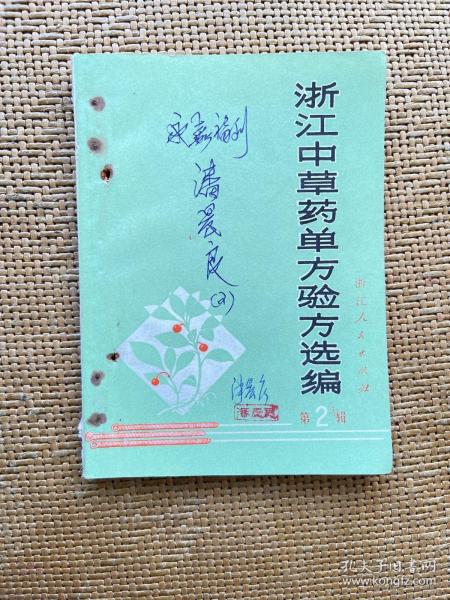 浙江中草药单方验方选编
第2辑
浙江人民出版社
潘晨良
(2)
孔夫子旧书网
kongfz.com